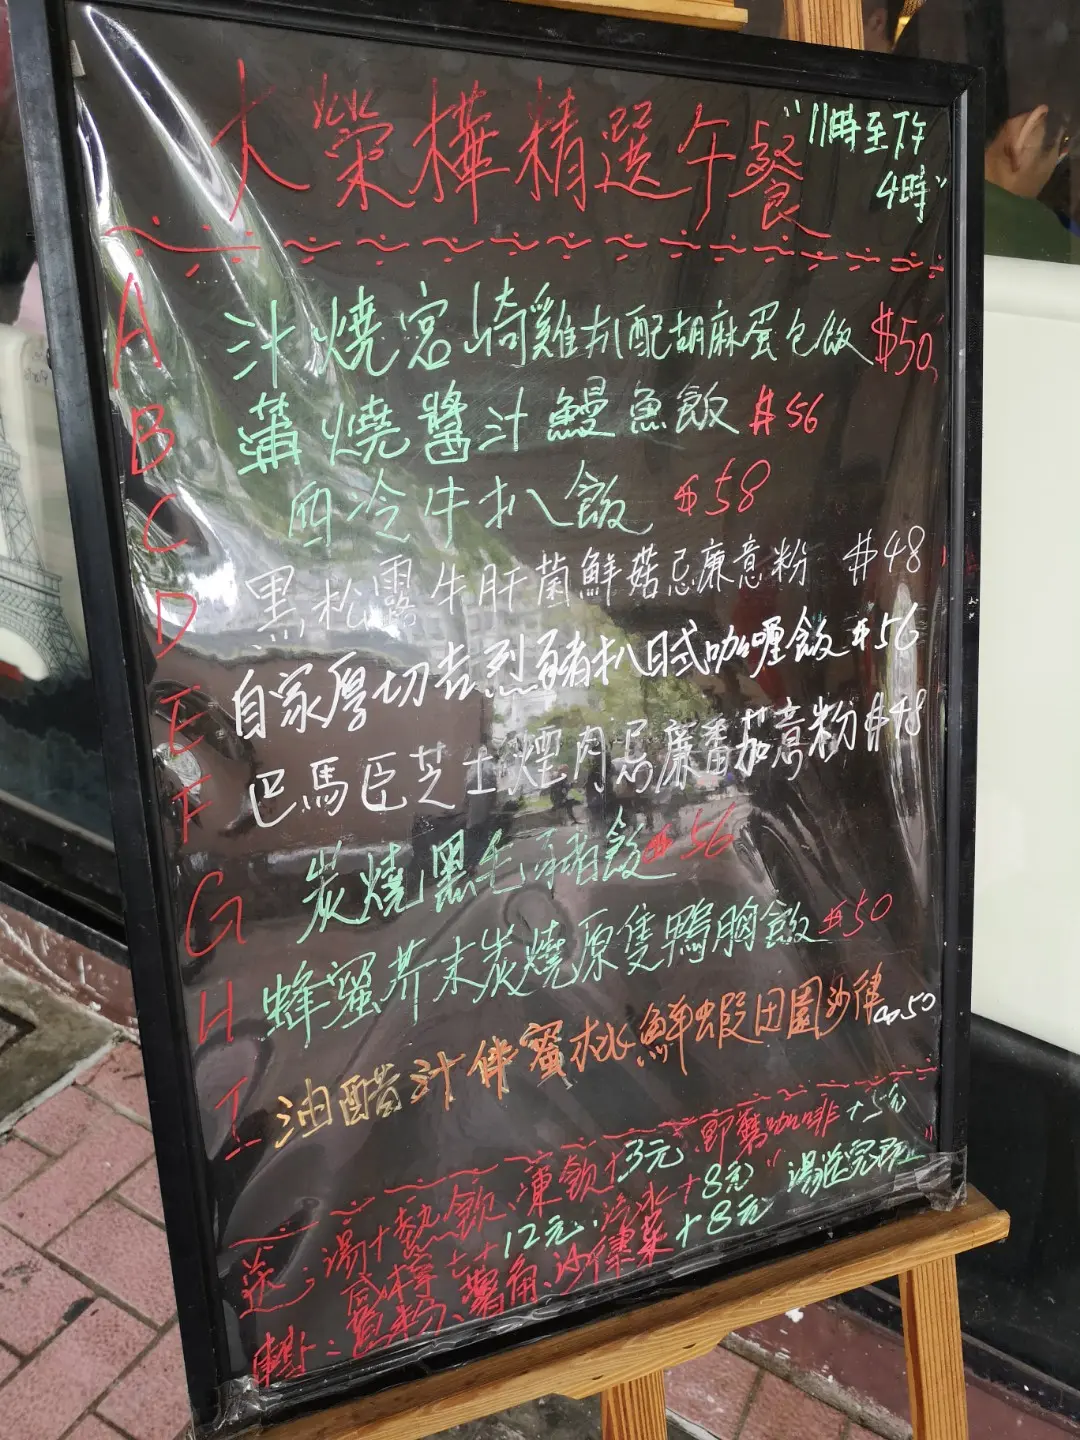 大榮樺精選午餐
"11時至下午
4時"
A 汁燒宮崎雞扒配胡麻蛋包飯 $50
B 蒲燒醬汁鰻魚飯 $56
C 西冷牛扒飯 $58
D 黑松露牛肝菌鮮菇忌廉意粉 $48
E 自家厚切吉列豬扒日式咖喱飯 $56
F 巴馬臣芝士煙肉忌廉蕃茄意粉 $48
G 炭燒黑毛豬飯 $56
H 蜂蜜芥末炭燒原隻鴨胸飯 $50
I 油醋汁伴蜜桃鮮蝦田園沙律 $50
送：湯+熱飲、凍飲+3元 即磨咖啡+5元
咸檸七+12元·汽水+8元 "湯送完即止"
轉：意粉、薯角、沙律菜+8元